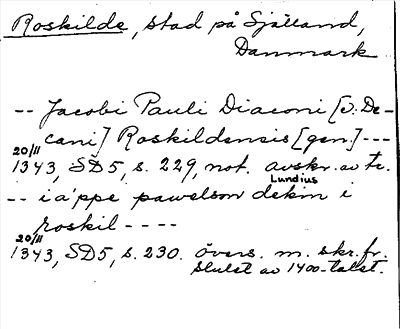 Roskilde, stad på Själland,
Danmark
-- Jacobi Pauli Diaconi [ɔ: De-
cani] Roskildensis [gen.] ---
20/11
1343, SD5, s. 229, not. avskr. av
Lundius
-- ia'ppe pawelson dekin i
roskil ----
20/11
1343, SD5, s. 230. övers. m. skr. fr.
slutet av 1400-talet.